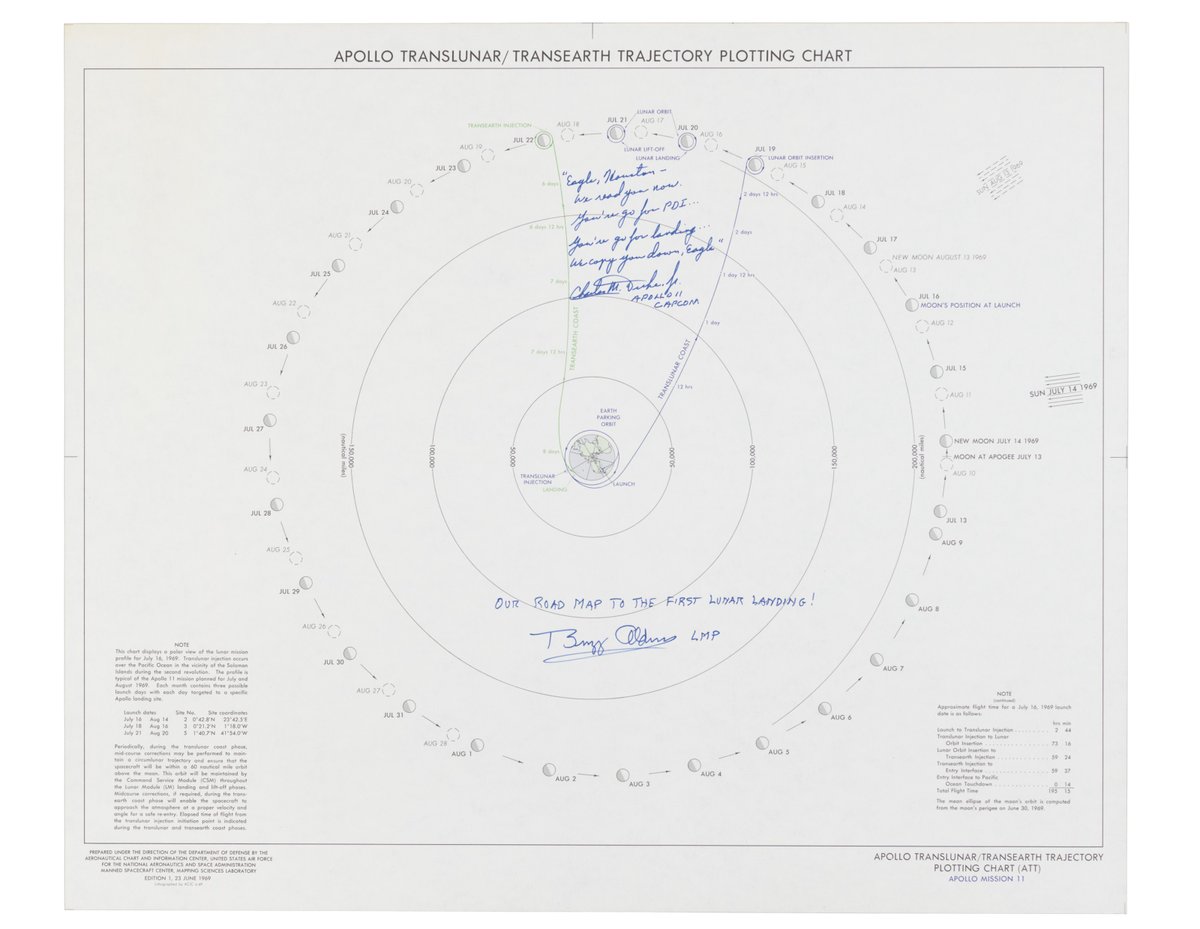 APOLLO TRANSLUNAR/TRANSEARTH TRAJECTORY PLOTTING CHART
TRANSEARTH INJECTION
AUG 18
JUL 21
LUNAR ORBIT
AUG 17
JUL 20
AUG 16
JUL 22
LUNAR LIFT-OFF
LUNAR LANDING
JUL 19
LUNAR ORBIT INSERTION
AUG 15
AUG 19
JUL 23
AUG 20
JUL 24
AUG 21
JUL 25
AUG 22
JUL 26
AUG 23
JUL 27
AUG 24
JUL 28
AUG 25
JUL 29
AUG 26
JUL 30
AUG 27
JUL 31
AUG 28
AUG 1
AUG 2
AUG 3
AUG 4
AUG 5
AUG 6
AUG 7
AUG 8
AUG 9
JUL 13
AUG 10
MOON AT APOGEE JULY 13
NEW MOON JULY 14 1969
AUG 11
JUL 15
AUG 12
JUL 16
MOON'S POSITION AT LAUNCH
AUG 13
NEW MOON AUGUST 13 1969
JUL 17
AUG 14
JUL 18
SUN AUG 13 1969
SUN JULY 14 1969
6 days
6 days 12 hrs
7 days
7 days 12 hrs
8 days
TRANSEARTH COAST
2 days 12 hrs
2 days
1 day 12 hrs
1 day
12 hrs
TRANSLUNAR COAST
"Eagle, Houston –
We read you now.
You're go for PDI...
You're go for landing...
We copy you down, Eagle"
Charles M. Duke, Jr.
APOLLO 11
CAPCOM
EARTH
PARKING
ORBIT
TRANSLUNAR
INJECTION
LANDING
LAUNCH
(nautical miles)
150,000
100,000
50,000
50,000
100,000
150,000
200,000
(nautical miles)
OUR ROAD MAP TO THE FIRST LUNAR LANDING!
Buzz Aldrin LMP
NOTE
This chart displays a polar view of the lunar mission
profile for July 16, 1969. Translunar injection occurs
over the Pacific Ocean in the vicinity of the Solomon
Islands during the second revolution. The profile is
typical of the Apollo 11 mission planned for July and
August 1969. Each month contains three possible
launch days with each day targeted to a specific
Apollo landing site.
Launch dates Site No. Site coordinates
July 16 Aug 14 2 0°42.8'N 23°42.5'E
July 18 Aug 16 3 0°21.2'N 1°18.0'W
July 21 Aug 20 5 1°40.7'N 41°54.0'W
Periodically, during the translunar coast phase,
mid-course corrections may be performed to main-
tain a circumlunar trajectory and ensure that the
spacecraft will be within a 60 nautical mile orbit
above the moon. This orbit will be maintained by
the Command Service Module (CSM) throughout
the Lunar Module (LM) landing and lift-off phases.
Midcourse corrections, if required, during the trans-
earth coast phase will enable the spacecraft to
approach the atmosphere at a proper velocity and
angle for a safe re-entry. Elapsed time of flight from
the translunar injection initiation point is indicated
during the translunar and transearth coast phases.
NOTE
(continued)
Approximate flight time for a July 16, 1969 launch
date is as follows:
hrs min
Launch to Translunar Injection . . . . . . . . . . 2 44
Translunar Injection to Lunar
Orbit Insertion . . . . . . . . . . 73 16
Lunar Orbit Insertion to
Transearth Injection . . . . . . . . . . 59 24
Transearth Injection to
Entry Interface . . . . . . . . . . 59 37
Entry Interface to Pacific
Ocean Touchdown . . . . . . . . . . 0 14
Total Flight Time 195 15
The mean ellipse of the moon's orbit is computed
from the moon's perigee on June 30, 1969.
PREPARED UNDER THE DIRECTION OF THE DEPARTMENT OF DEFENSE BY THE
AERONAUTICAL CHART AND INFORMATION CENTER, UNITED STATES AIR FORCE
FOR THE NATIONAL AERONAUTICS AND SPACE ADMINISTRATION
MANNED SPACECRAFT CENTER, MAPPING SCIENCES LABORATORY
EDITION 1, 23 JUNE 1969
Lithographed by ACIC
APOLLO TRANSLUNAR/TRANSEARTH TRAJECTORY
PLOTTING CHART (ATT)
APOLLO MISSION 11